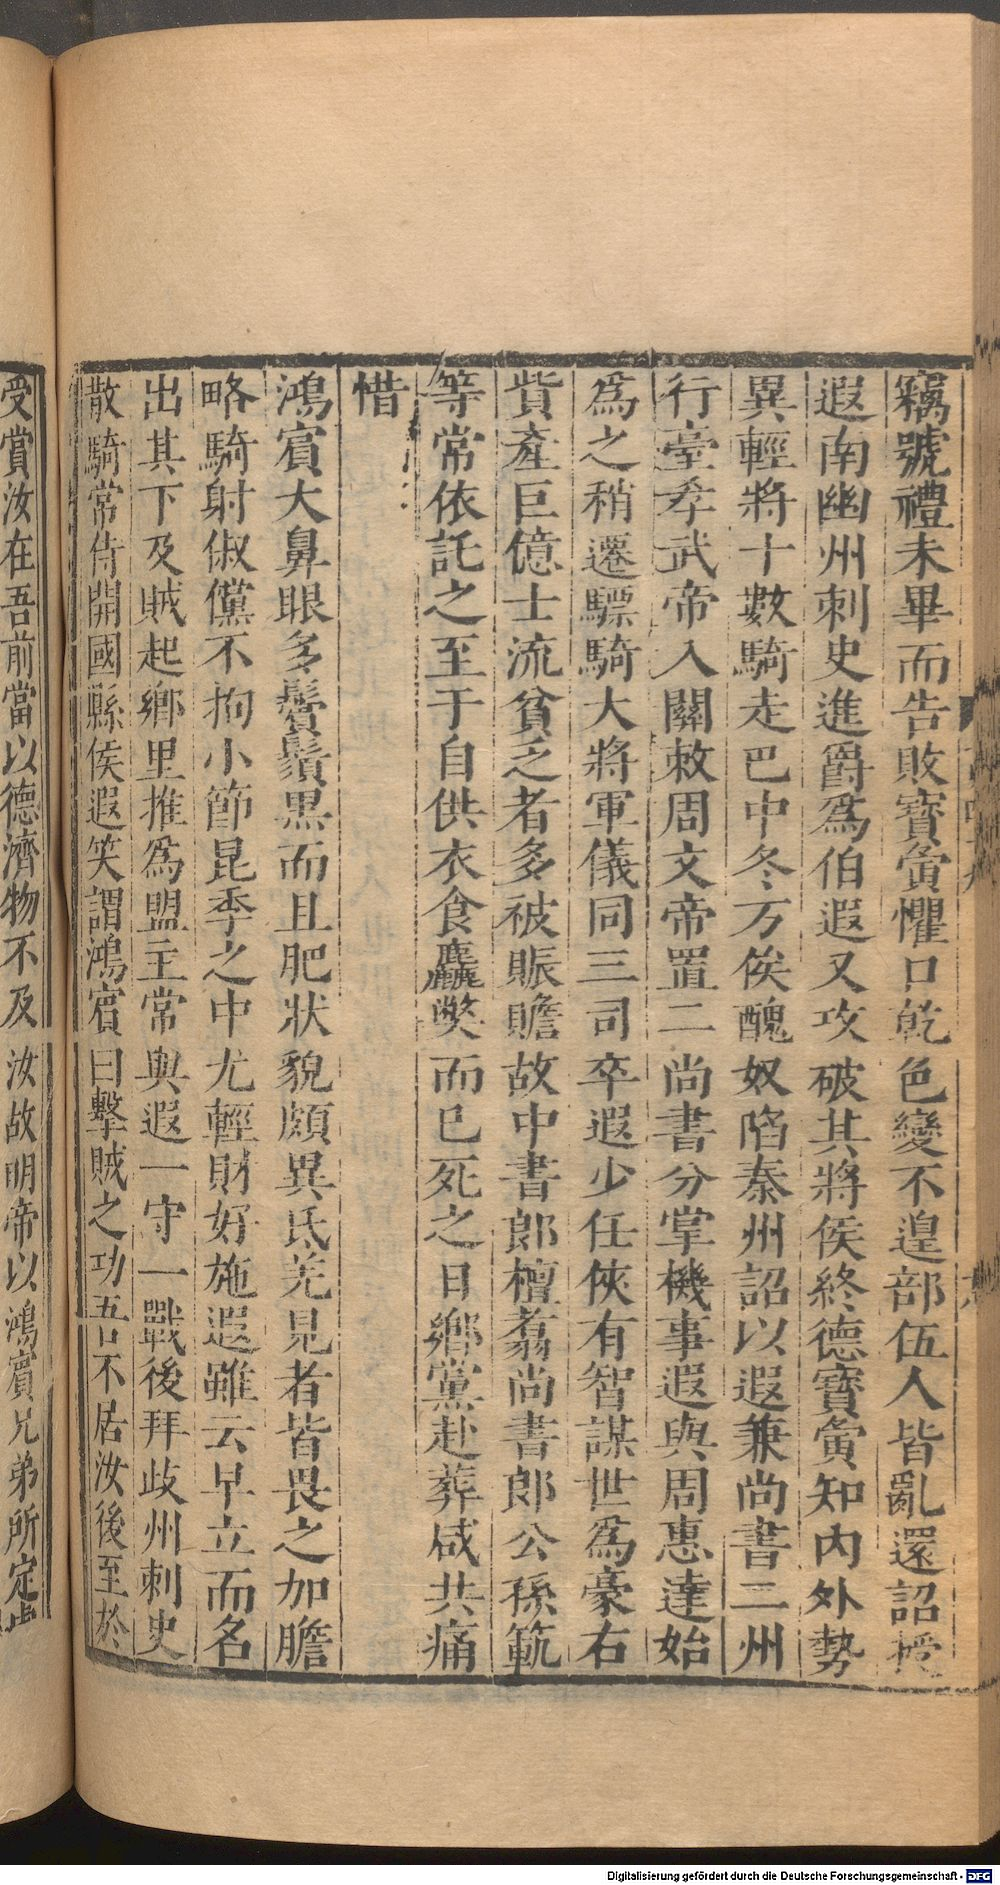 竊號禮未畢而告敗寶夤懼口乾色變不遑部伍人皆亂還詔授
遐南幽州刺史進爵爲伯遐又攻破其將侯終德寶夤知內外勢
異輕將十數騎走巴中冬万俟醜奴陷秦州詔以遐兼尚書二州
行臺孝武帝入關敕周文帝置二尚書分掌機事遐與周惠達始
爲之稍遷驃騎大將軍儀同三司卒遐少任俠有智謀世爲豪右
貲產巨億士流貧乏者多被賑贍故中書郎檀翥尚書郎公孫範
等常依託之至于自供衣食麤獘而已死之日鄉黨赴葬咸共痛
惜
鴻賔大鼻眼多鬢鬚黒而且肥狀貌頗異氐羌見者皆畏之加膽
略騎射俶儻不拘小節昆季之中尤輕財好施遐雖云早立而名
出其下及賊起鄉里推爲盟主常與遐一守一戰後拜歧州刺史
散騎常侍開國縣侯遐笑謂鴻賔曰擊賊之功吾不居汝後至於
受賞汝在吾前當以德濟物不及汝故明帝以鴻賓兄弟所定
Digitalisierung gefördert durch die Deutsche Forschungsgemeinschaft - DFG